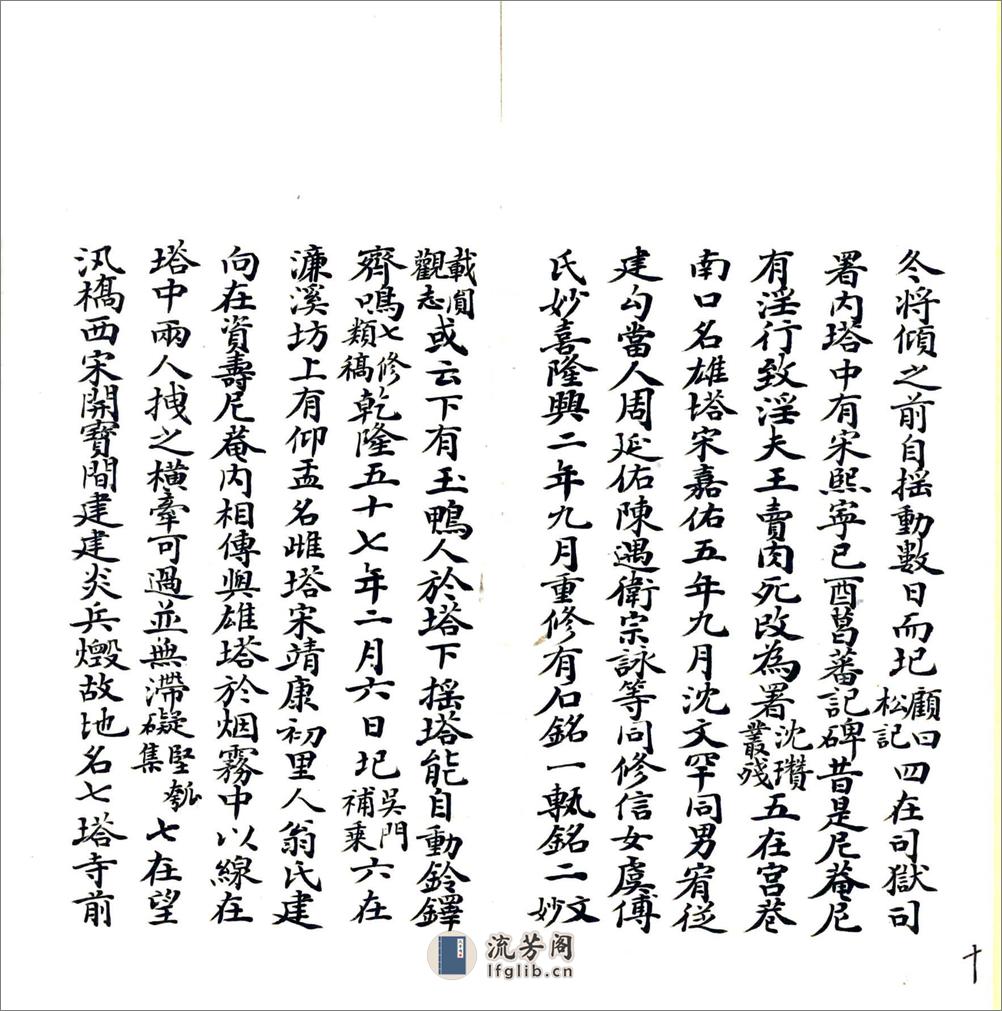 冬將傾之前自揺動數日而圮顧曰松記四在司獄司
署内塔中有宋熙寕己酉葛蕃記碑昔是尼菴尼
有淫行致淫夫王賣肉死改為署沈瓚叢殘五在宫巷
南口名雄塔宋嘉佑五年九月沈文罕同男宥從
建勾當人周延佑陳遇衛宗詠等同修信女虞傳
氏妙喜隆興二年九月重修有石銘一甎銘二文妙
載圓觀志或云下有玉鴨人於塔下揺塔能自動鈴鐸
齊鳴七修類稿乾隆五十七年二月六日圮吳門補乘六在
濂溪坊上有仰盂名雌塔宋靖康初里人翁氏建
向在資壽尼菴内相傳與雄塔於烟霧中以線在
塔中兩人拽之横牽可過並無滯礙堅瓠集七在望
汛橋西宋開寶間建建炎兵燬故地名七塔寺前
十
流芳阁
lfglib.cn